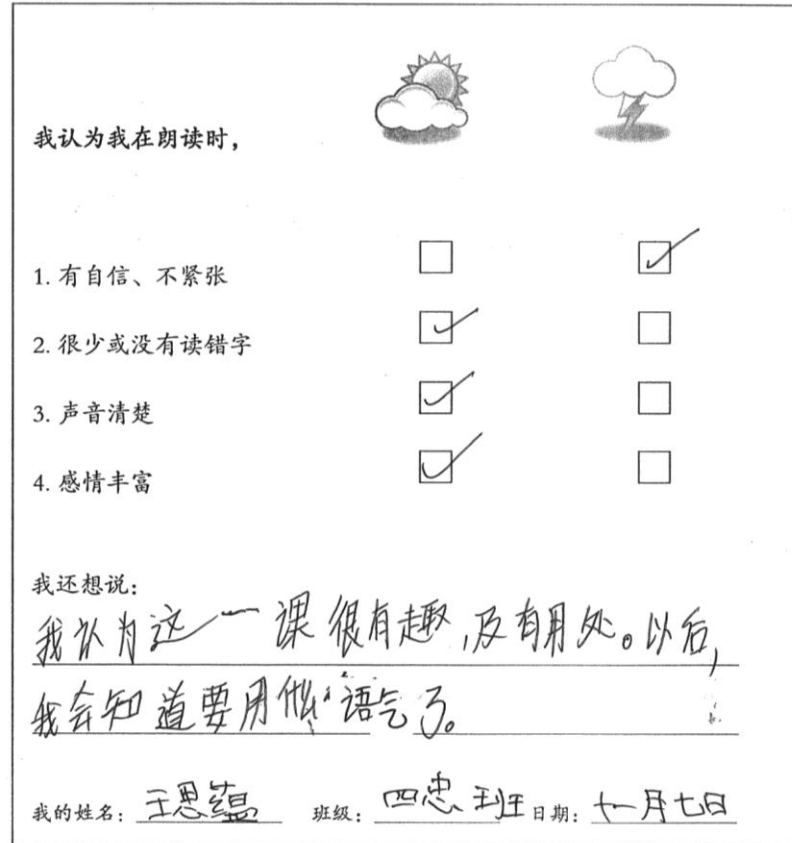 我认为我在朗读时，
1. 有自信、不紧张
2. 很少或没有读错字
3. 声音清楚
4. 感情丰富
我还想说：
我认为这一课很有趣，及有用处。以后，
我会知道要用 语气了。
我的姓名：王思蕴 班级：四忠班 日期：十一月七日